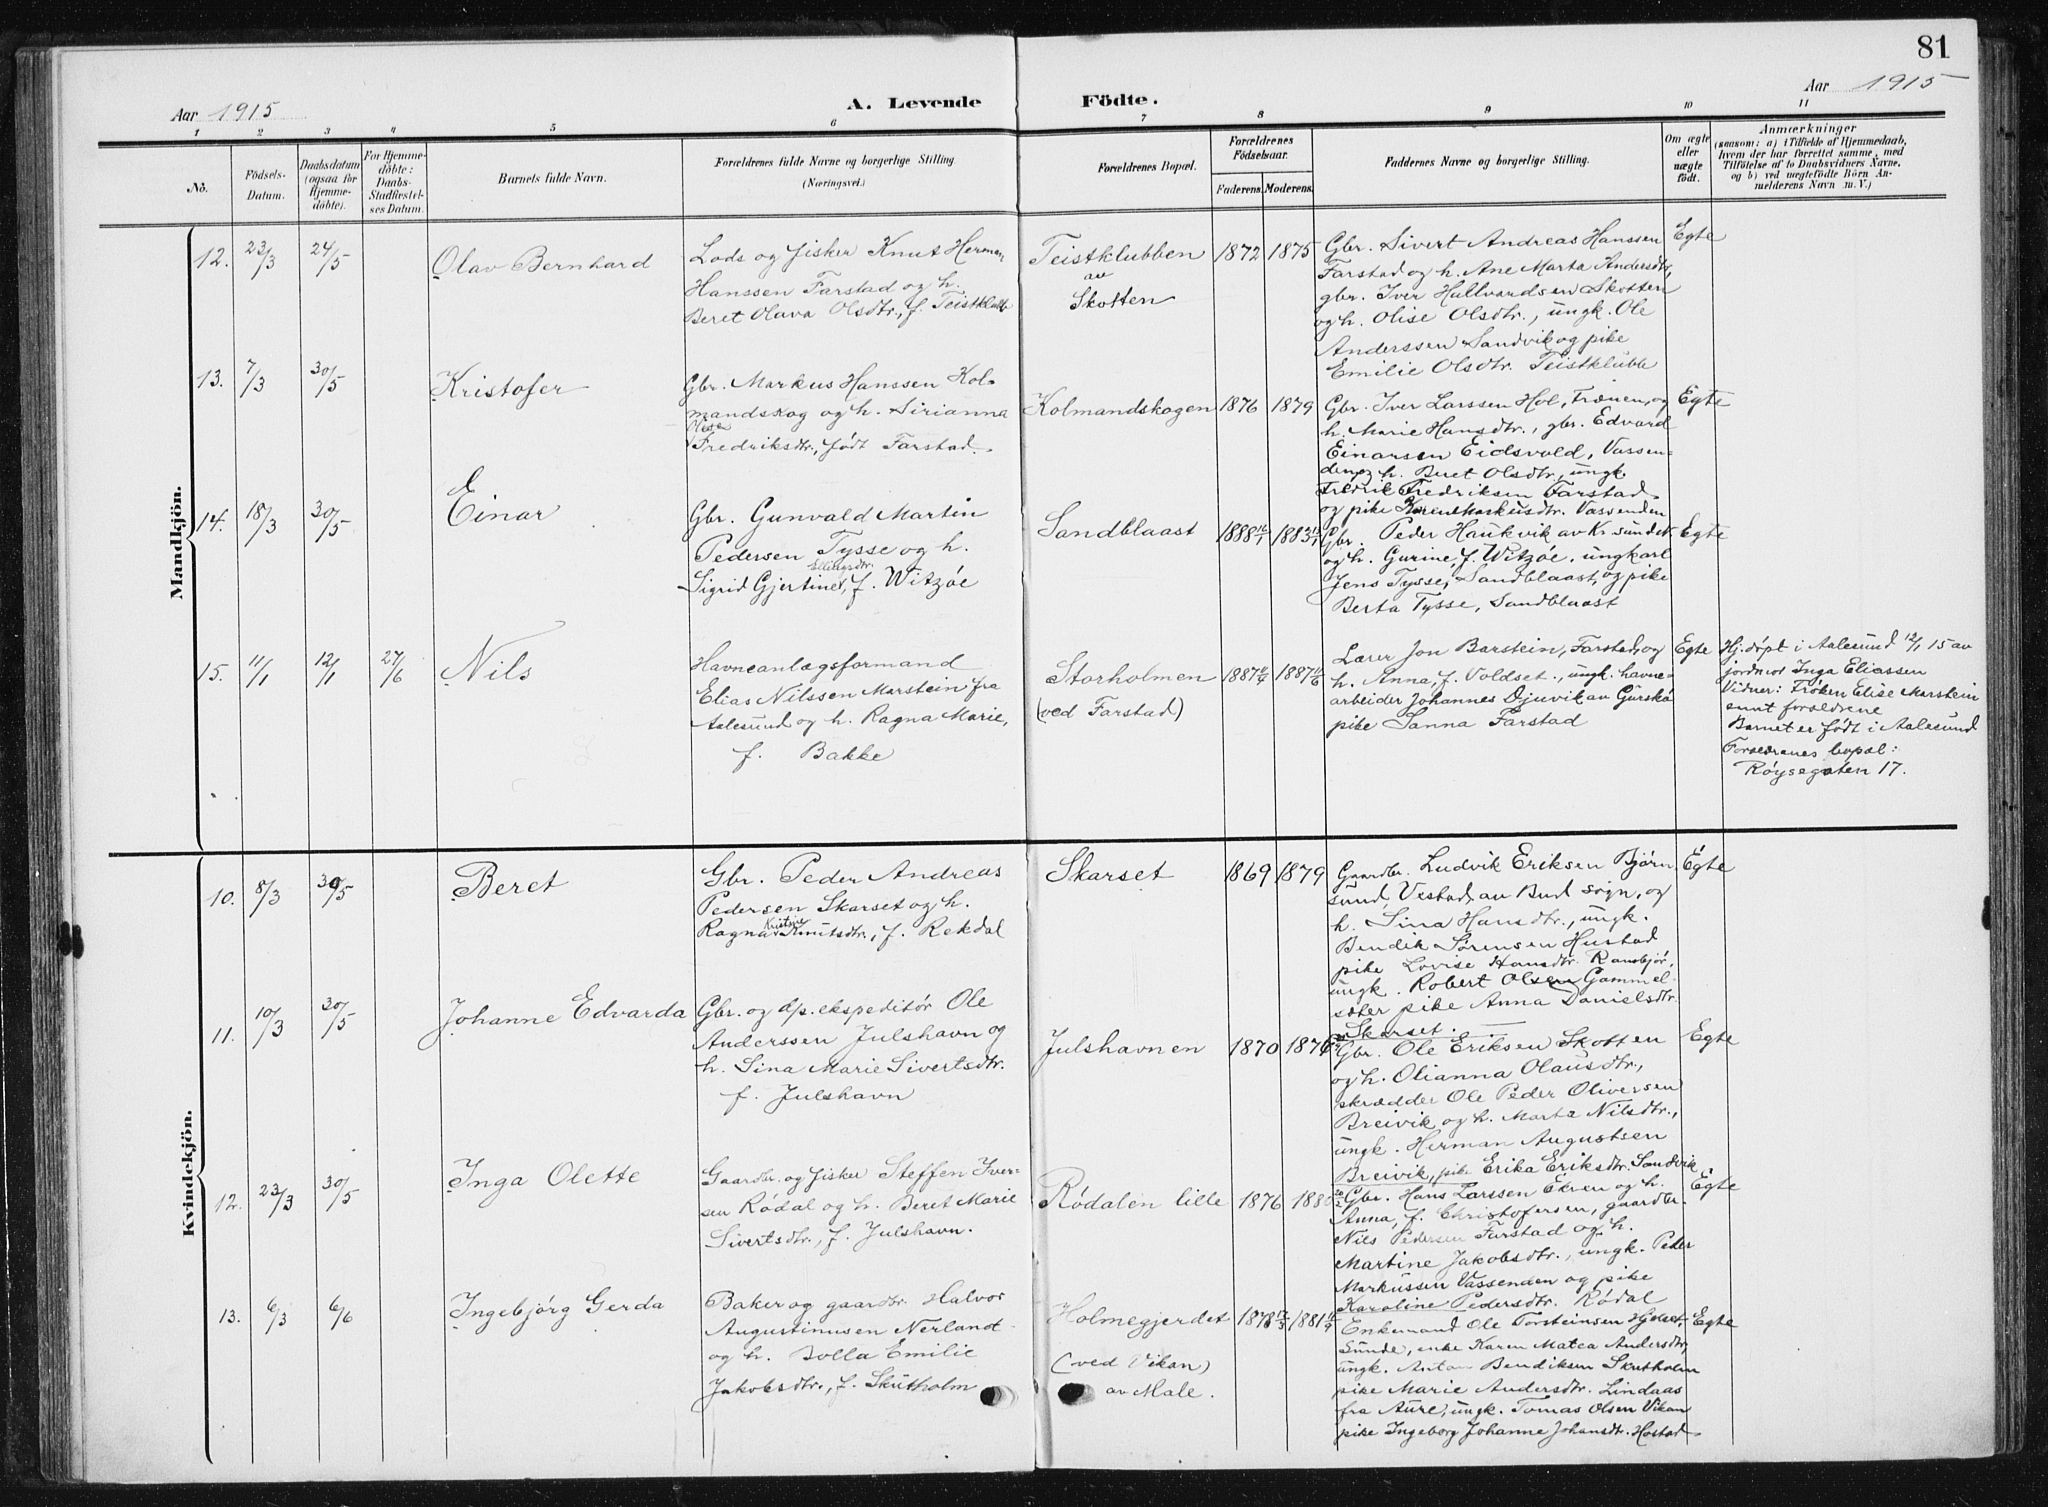 81
Aar 1915
A. Levende Födte.
Aar 1915
1 2 3 4 5 6 7 8 9 10 11
No.
Födsels-
Datum.
Daabsdatum
(ogsaa for
Hjemme-
döbte).
For Hjemme-
döbte:
Daabs-
Stadfæstel-
ses Datum.
Barnets fulde Navn.
Forældrenes fulde Navne og borgerlige Stilling
(Næringsvei.)
Forældrenes Bopæl.
Forældrenes
Födselsaar.
Faderens. Moderens.
Faddernes Navne og borgerlige Stilling.
Om ægte
eller
uægte
födt.
Anmærkninger
(saasom: a) i Tilfælde af Hjemmedaab,
hvem der har forrettet samme, med
Tilföielse af to Daabsvidners Navne,
og b) ved uægtefödte Börn An-
melderens Navn m. V.)
Mandkjön.
12. 23/3 24/5
Olav Bernhard
Lods og fisker Knut Herman
Hanssen Farstad og h.
Beret Olava Olsdtr., f. Teistklubb
Teistklubben
av
Skotten
1872 1875
Gbr. Sivert Andreas Hanssen
Farstad og h. Ane Marta Andersdtr,
gbr. Iver Hallvardsen Skotten
og h. Olise Olsdtr., ungk. Ole
Anderssen Sandvik og pike
Emilie Olsdtr. Teistklubb
Egte
13. 7/3 30/5
Kristofer
Gbr. Markus Hanssen Kol-
mandskog og h. Sirianna
Olise
Fredriksdtr, født Farstad.
Kolmandskogen
1876 1879
Gbr. Iver Larssen Hol, Frænen, og
h. Marie Hansdtr., gbr. Edvard
Einarsen Eidsvold, Vassen-
den og h. Beret Olsdtr, ungk.
Fredrik Fredriksen Farstad
og pike Karen Markusdtr. Vassenden
Egte
14. 18/3 30/5
Einar
Gbr. Gunvald Martin
Pedersen Tysse og h.
Ellingsdtr.
Sigrid Gjertine, f. Witzøe
Sandblaast
1888 1883
Gbr. Peder Haukvik av Kr.sund
og h. Gurine, f. Witzøe, ungkarl
Jens Tysse, Sandblaast, og pike
Berta Tysse, Sandblaast
Egte
15. 11/1 12/1 27/6
Nils
Havneanlægsformand
Elias Nilssen Marstein fra
Aalesund og h. Ragna Marie,
f. Bakke
Storholmen
(ved Farstad)
1887 1887
Lærer Jon Barstein, Farstad, og
h. Anna, f. Voldset., ungk. havne-
arbeider Johannes Djuvik av Gurskø
pike Sanna Farstad
Egte
Hj.døpt i Aalesund 12/1 15 av
jordmor Inga Eliassen
Vidner: Frøken Elise Marstein
samt forældrene
Barnet er født i Aalesund
Forældrenes bopæl:
Røysegaten 17.
Kvindekjön.
10. 8/3 30/5
Beret
Gbr. Peder Andreas
Pedersen Skarset og h.
Kristine
Ragna Knutsdtr., f. Rekdal
Skarset
1869 1879
Gaardbr. Ludvik Eriksen Bjørn-
sund, Vestad, av Bud sogn, og
h. Sina Hansdtr., ungk.
Bendik Sørensen Hustad
pike Lovise Hansdtr. Ransbjør,
ungk. Robert Olsen Gammel-
sæter pike Anna Danielsdtr.
Skarset.
Egte
11. 10/3 30/5
Johanne Edvarda
Gbr. og dp. ekspeditør Ole
Anderssen Julshavn og
h. Sina Marie Sivertsdtr.
f. Julshavn
Julshavnen
1870 1876
Gbr. Ole Eriksen Skotten
og h. Olianna Olausdtr.,
skrædder Ole Peder Oliversen
Breivik og h. Marta Nilsdtr.,
ungk. Herman Augustsen
Breivik, pike Erika Eriksdtr. Sandvik
Egte
12. 23/3 30/5
Inga Olette
Gaardbr. og fisker Steffen Iver-
sen Rødal og h. Beret Marie
Sivertsdtr., f. Julshavn.
Rødalen lille
1876 1880
Gbr. Hans Larssen Ekren og h.
Anna, f. Christofersen, gaardbr.
Nils Pedersen Farstad og h.
Martine Jakobsdtr., ungk. Peder
Markussen Vassenden og pike
Karoline Pedersdtr. Rødal
Egte
13. 6/3 6/6
Ingebjørg Gerda
Baker og gaardbr. Halvor
Augustinusen Nerland
og h. Bolla Emilie
Jakobsdtr., f. Skutholm
Holmegjerdet
(ved Vikan)
av Male.
1878 1881
Enkemand Ole Torsteinsen Hjelset
Sunde, enke Karen Matea Andersdtr,
ungk. Anton Bendiksen Skutholm
pike Marie Andersdtr. Lindaas
fra Aure, ungk. Tomas Olsen Vikan
pike Ingeborg Johanne Johansdtr. Hostad
Egte